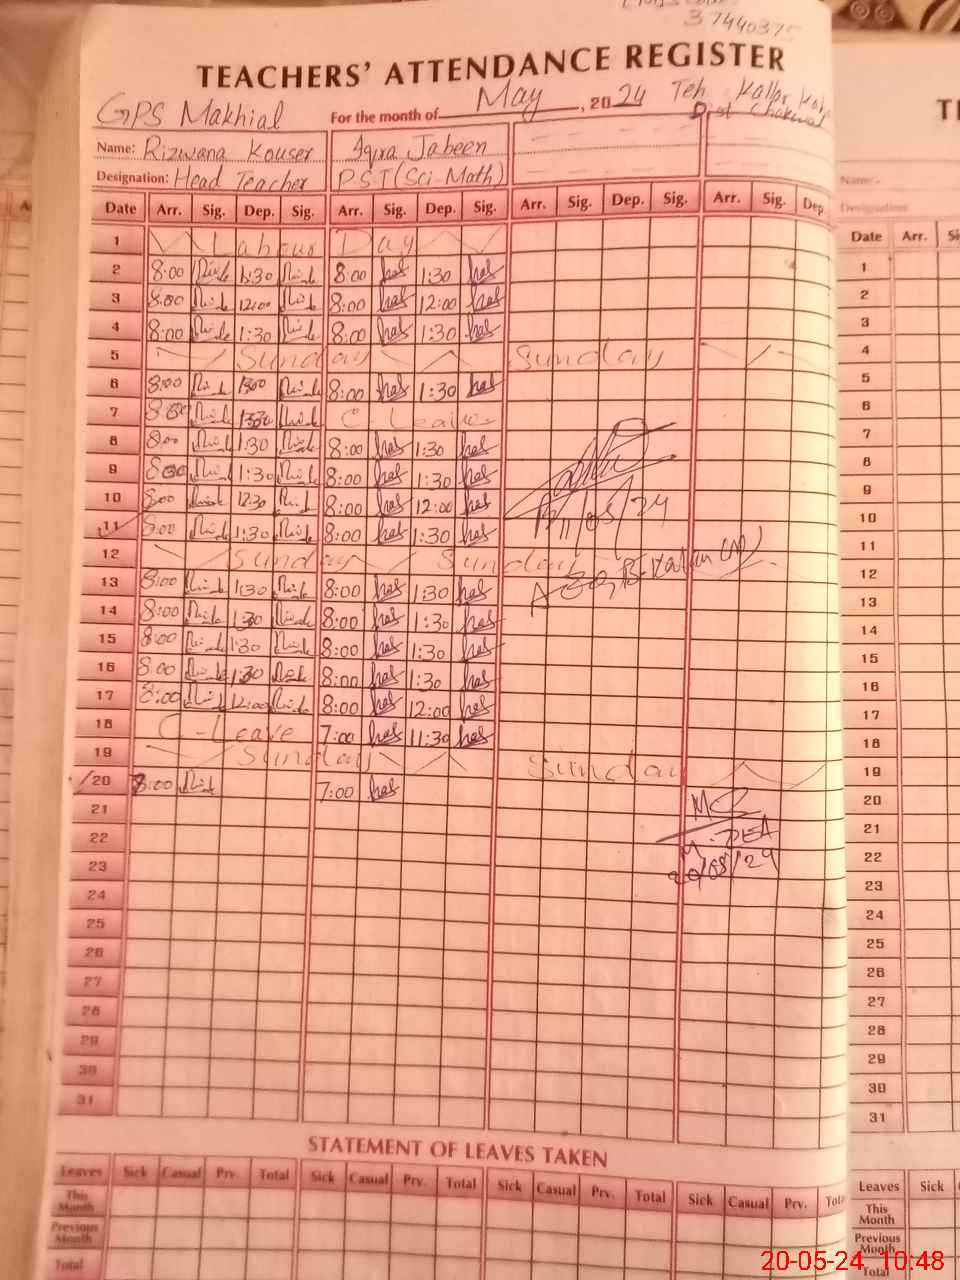 37440375
TEACHERS' ATTENDANCE REGISTER
GPS Makhial For the month of May, 2024 Teh Kallar Kahar
Dist Chakwal
Name: Rizwana Kouser Iqra Jabeen
Designation: Head Teacher PST(Sci-Math)
Date Arr. Sig. Dep. Sig. Arr. Sig. Dep. Sig. Arr. Sig. Dep. Sig. Arr. Sig. Dep
1 Labour Day
2 8:00 1:30 8:00 1:30
3 8:00 12:00 8:00 12:00
4 8:00 1:30 8:00 1:30
5 Sunday Sunday
6 8:00 1:30 8:00 1:30
7 8:00 1:30 C-Leave
8 8:00 1:30 8:00 1:30
9 8:00 1:30 8:00 1:30
10 8:00 12:30 8:00 12:00
11 8:00 1:30 8:00 1:30
11/05/24
12 Sunday Sunday
13 8:00 1:30 8:00 1:30
14 8:00 1:30 8:00 1:30
15 8:00 1:30 8:00 1:30
16 8:00 1:30 8:00 1:30
17 8:00 12:00 8:00 12:00
18 C-Leave 7:00 11:30
19 Sunday Sunday
20 8:00 7:00
21
22
20/05/24
23
24
25
26
27
28
29
30
31
STATEMENT OF LEAVES TAKEN
Leaves Sick Casual Prv. Total Sick Casual Prv. Total Sick Casual Prv. Total Sick Casual Prv. Total
This Month
Previous Month
Total
Name:
Designation:
Date Arr.
1
2
3
4
5
6
7
8
9
10
11
12
13
14
15
16
17
18
19
20
21
22
23
24
25
26
27
28
29
30
31
Leaves Sick
This Month
Previous Month
Total
20-05-24 10:48